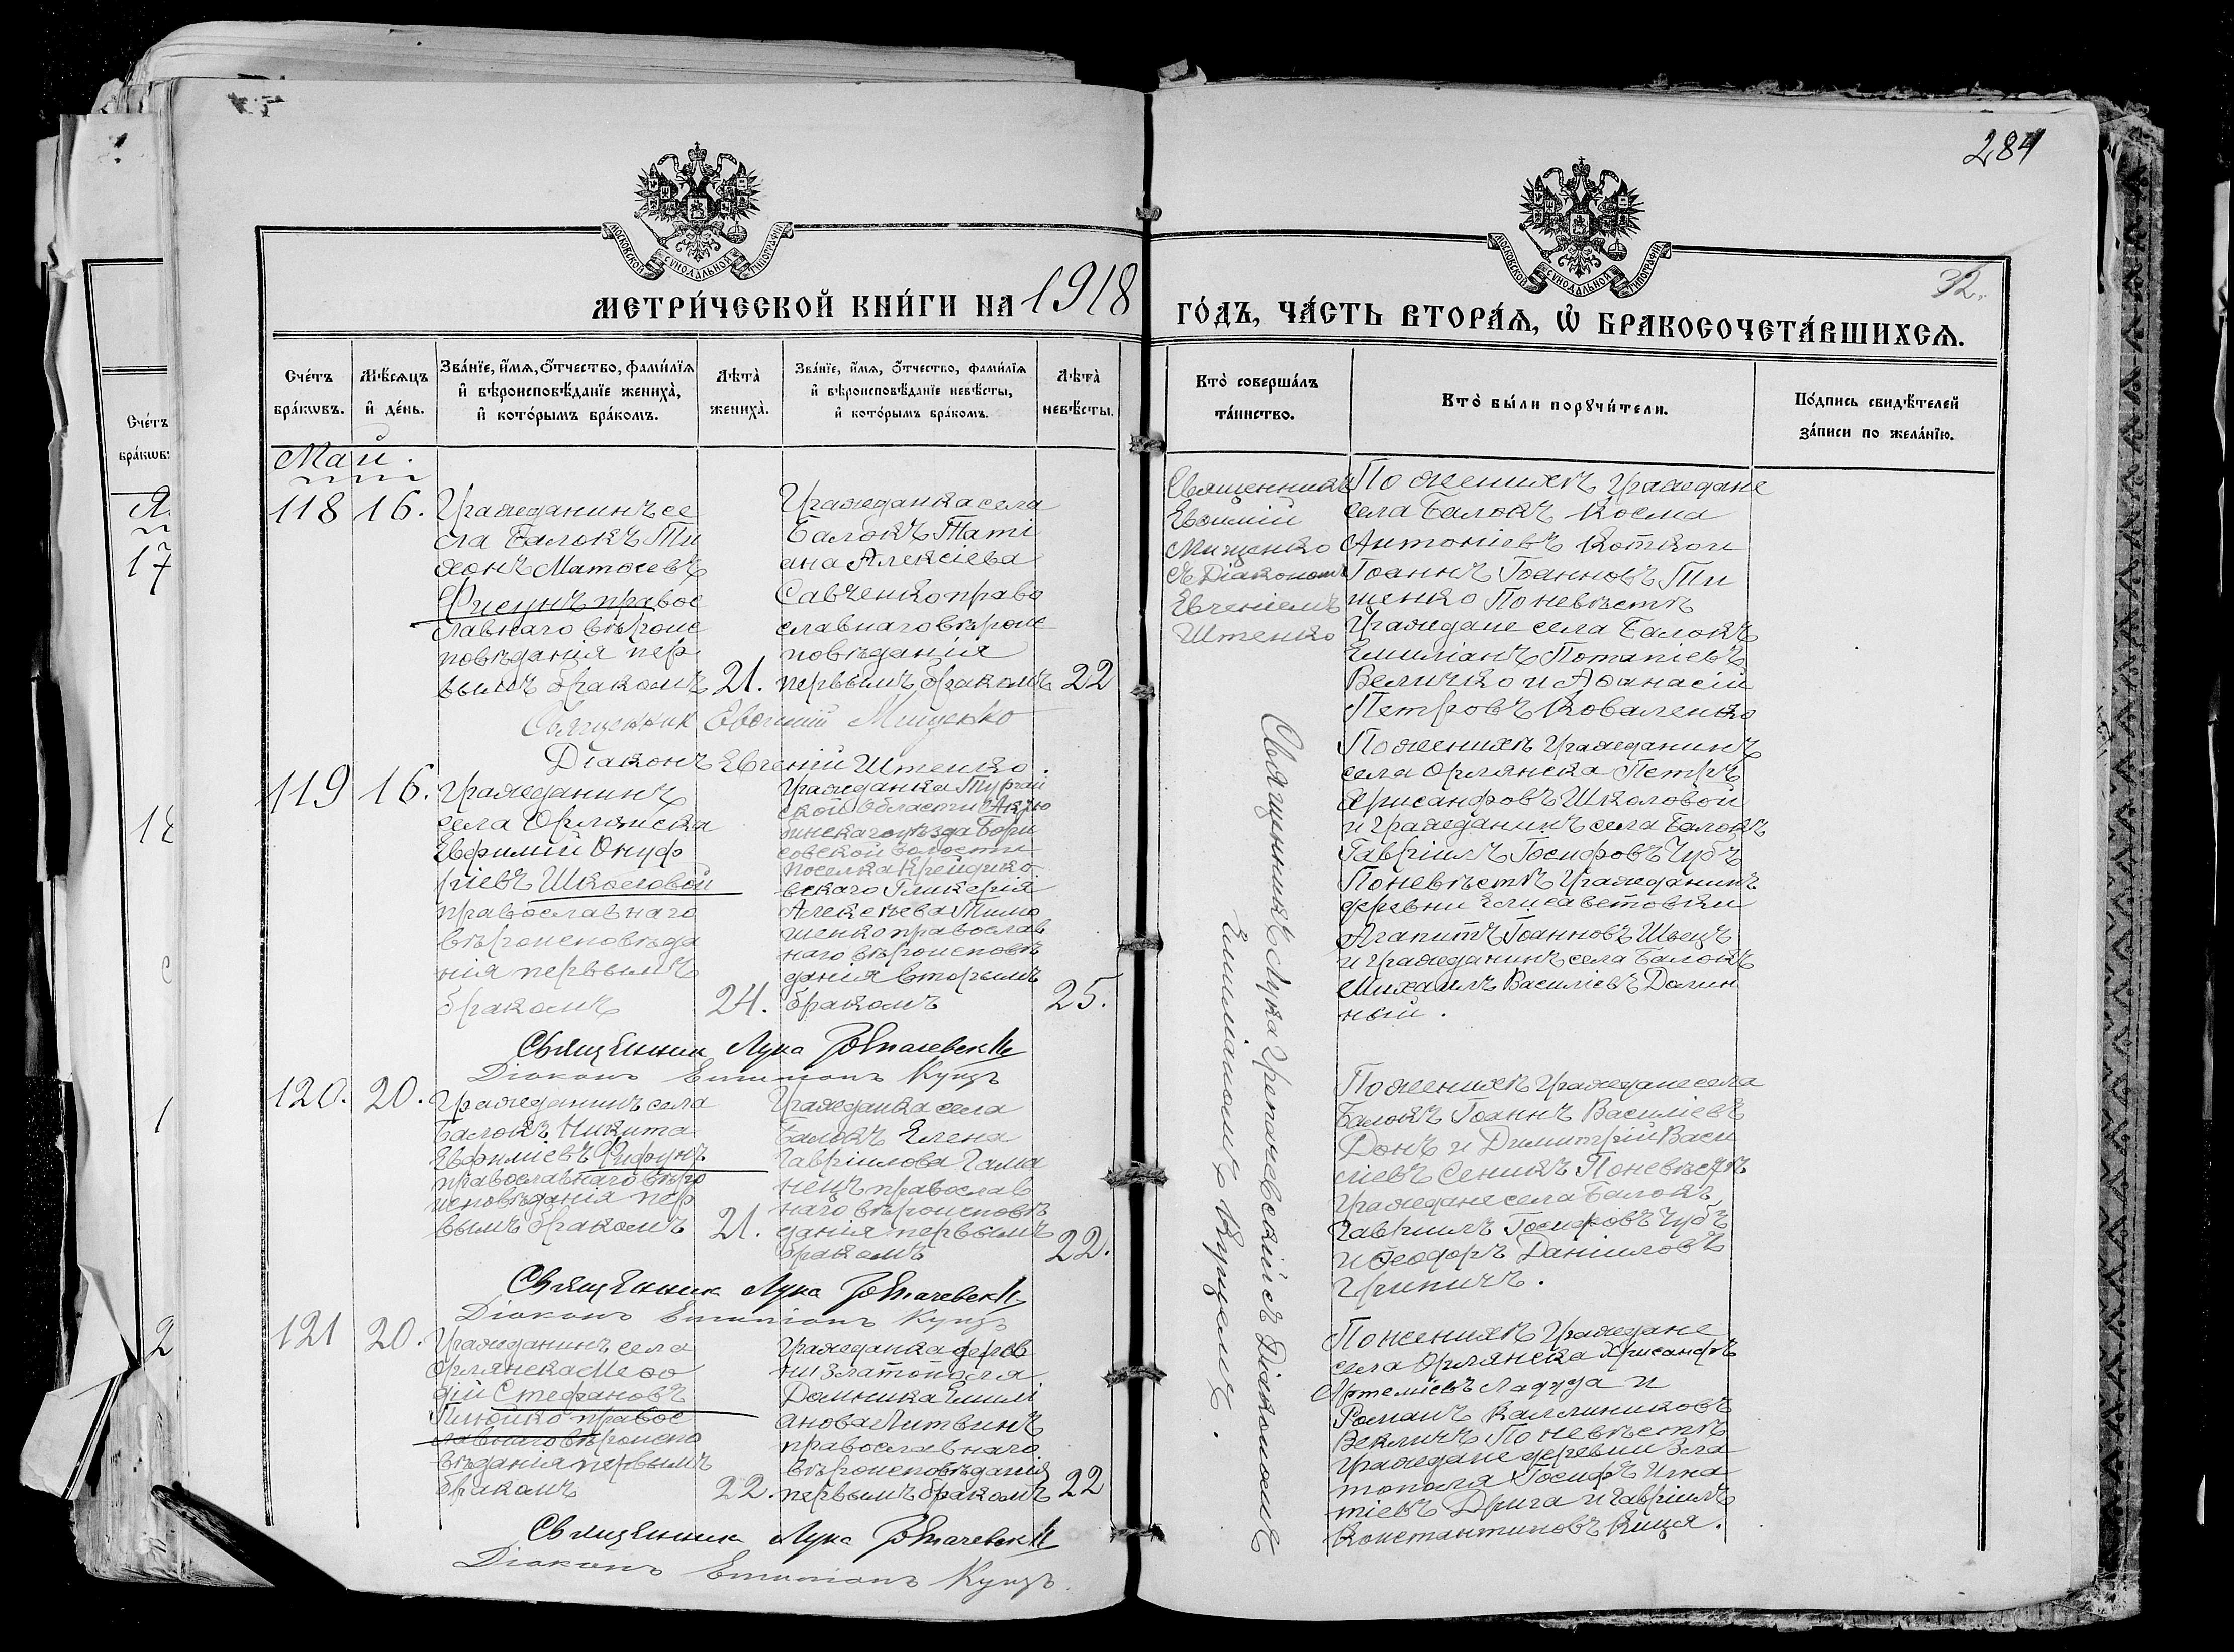 284
32.
МОСКОВСКОЙ СѴНОДАЛЬНОЙ ТИПОГРАФИИ
МОСКОВСКОЙ СѴНОДАЛЬНОЙ ТИПОГРАФИИ
МЕТРИ́ЧЕСКОЙ КНИ́ГИ НА 1918
ГО́ДЪ, ЧА́СТЬ ВТОРА́Ѧ, Ѡ҆ БРАКОСОЧЕТА́ВШИХСѦ.
Сче́тъ
бра́кѡвъ.
Мѣ́сѧцъ
и҆ де́нь.
Зва́нїе, и҆́мѧ, ѻ҆́тчество, фами́лїѧ
и҆ вѣроисповѣ́данїе жениха̀,
и҆ кото́рымъ бра́комъ.
Лѣ́та̀
жениха̀.
Зва́нїе, и҆́мѧ, ѻ҆́тчество, фами́лїѧ
и҆ вѣроисповѣ́данїе невѣ́сты,
и҆ кото́рымъ бра́комъ.
Лѣ́та̀
невѣ́сты.
Кто̀ соверша́лъ
та́инство.
Кто̀ бы́ли порꙋчи́тели.
По́дпись свидѣ́телей
за́писи по жела́нїю.
Сче́тъ
бра́кѡвъ
17
Май.
118
16.
Гражданинъ се
ла Балокъ Ти
хонъ Матѳіевъ
Фисунъ правос
лавнаго вѣроис
повѣданія пер
вымъ бракомъ
21.
Гражданка села
Балокъ Таті
ана Алексіева
Савченко право
славнаго вѣроис
повѣданія
первымъ бракомъ
22
Священникъ
Евѳимій
Мищенко
съ Діакономъ
Евгеніемъ
Штенко
По женихѣ граждане
села Балокъ Косма
Антоніевъ Коткои
Іоаннъ Іоанновъ Ти
щенко По невѣстѣ
Граждане села Балокъ
Емиліанъ Потапіевъ
Величко и Аѳанасій
Петровъ Коваленко
Священник Евѳимій Мищенко
Діаконъ Евгеній Штенко.
119
16.
Гражданинъ
села Орлянска
Евфимій Онуф
ріевъ Школовой
православнаго
вѣроисповѣда
нія первымъ
бракомъ
24.
Гражданка Тургай
ской области Актю
бинскаго уѣзда Бори
совской волости
поселка Крейдико
вскаго Гликерія
Алексѣева Тимо
шенко православ
наго вѣроисповѣ
данія вторымъ
бракомъ
25.
По женихѣ гражданинъ
села Орлянска Петръ
Хрисанфовъ Школовой
и гражданинъ села Балокъ
Гавріилъ Іосифовъ Чубъ
По невѣстѣ Гражданинъ
деревни Елисаветовки
Агапитъ Іоанновъ Швецъ
и гражданинъ села Балокъ
Михаилъ Василіевъ Долин
ный.
Священник Лука
Діаконъ Емиліанъ Купцъ
Священникъ Лука съ Діакономъ
Емиліаномъ Купцемъ.
120.
20.
Гражданинъ села
Балокъ Никита
Евфиміевъ
православнаго вѣро
исповѣданія пер
вымъ бракомъ
21.
Гражданка села
Балокъ Елена
Гавріилова Гама
нецъ православ
наго вѣроисповѣ
данія первымъ
бракомъ
22.
По женихѣ граждане села
Балокъ Іоаннъ Василіевъ
Донъ и Димитрій Васи
ліевъ Сеникъ По невѣстѣ
граждане села Балокъ
Гавріилъ Іосифовъ Чубъ
и Ѳеодоръ Даніиловъ
Грипичъ.
Священник Лука
Діаконъ Емиліанъ Купцъ
121
20.
Гражданинъ села
Орлянска Меѳо
дій Стефановъ
Плюйко правос
лавнаго вѣроиспо
вѣданія первымъ
бракомъ
22.
Гражданка дерев
ни Златополя
Домника Емилі
анова Литвинъ
православнаго
вѣроисповѣданія
первымъ бракомъ
22
По женихѣ граждане
села Орлянска Хрисанфъ
Артеміевъ Ладуда и
Романъ Каллиниковъ
Векличъ По невѣстѣ
граждане деревни Зла
тополя Іосифъ Игна
тіевъ Дрига и Гавріилъ
Константиновъ Кицея.
Священник Лука
Діаконъ Емиліанъ Купцъ.